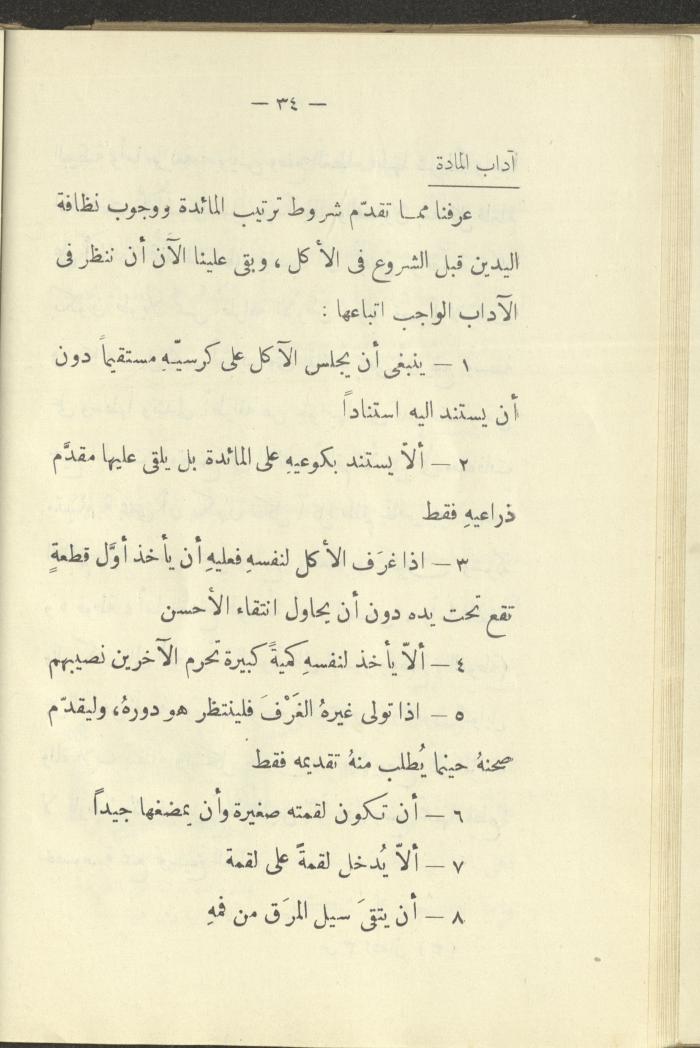 — ٣٤ —
آداب المادة
عرفنا ممـا تقدّم شروط ترتيب المائدة ووجوب نظافة
اليدين قبل الشروع فى الأكل ، وبقى علينا الآن أن ننظر فى
الآداب الواجب اتباعها :
١ — ينبغى أن يجلس الآكل على كرسيّهِ مستقيماً دون
أن يستند اليه استناداً
٢ — ألاّ يستند بكوعيهِ على المائدة بل يلقى عليها مقدَّم
ذراعيهِ فقط
٣ — اذا غرَف الأكل لنفسهِ فعليهِ أن يأخذ أوَّل قطعةٍ
تقع تحت يده دون أن يحاول انتقاء الأحسن
٤ — ألاّ يأخذ لنفسهِ كميةً كبيرة تحرم الآخرين نصيبهم
٥ — اذا تولى غيرهُ الغَرْفَ فلينتظر هو دورهُ، وليقدّم
صحنهُ حينما يُطلب منهُ تقديمه فقط
٦ — أن تكون لقمته صغيرة وأن يمضغها جيداً
٧ — ألاّ يُدخل لقمةً على لقمة
٨ — أن يتقىَ سيل المرَق من فمهِ